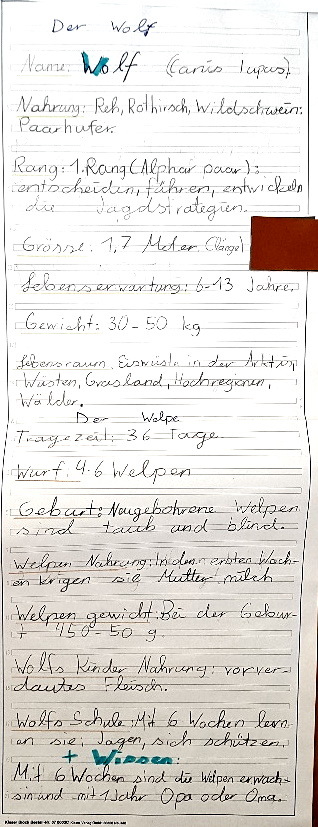 Der Wolf
Name: Wolf (Canis lupus)
Nahrung: Reh, Rothirsch, Wildschwein.
Paarhufer.
Rang: 1.Rang (Alphar paar):
entscheiden, führen, entwickeln
die Jagdstrategien.
Grösse: 1,7 Meter (länge)
Lebenserwartung: 6-13 Jahre.
Gewicht: 30-50 kg
Lebensraum, Eiswüste in der Arktis,
Wüsten, Grasland, Hochregionen,
Wälder.
Der Welpe
Tragezeit: 36 Tage
Wurf. 4-6 Welpen
Geburt: Neugebohrene Welpen
sind taub und blind.
Welpen Nahrung: In den ersten Woch-
en krigen sie Muttermilch
Welpen gewicht: Bei der Gebur-
t 450-50 g.
Wolfs Kinder Nahrung: vorver-
dautes Fleisch.
Wolfs Schule: Mit 6 Wochen lern-
en sie; Jagen, sich schützen,
+ Wissen:
Mit 6 Wochen sind die Welpen erwach-
sin und mit 1 Jahr Opa oder Oma.